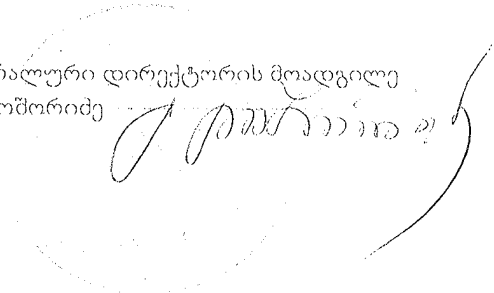 რალური დირექტორის მოადგილე
ოშორიძე